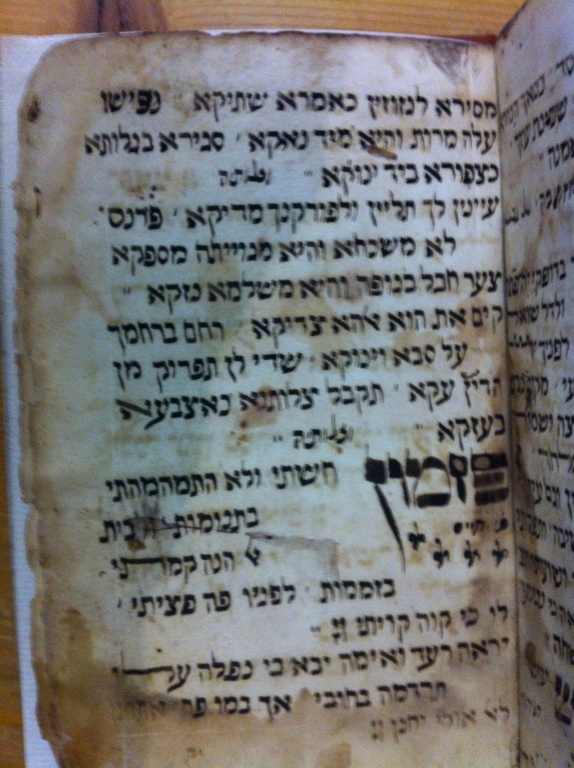 מסירא לגזוזין כאמרא שתיקא נפישו
עלה מרות והיא מיד נאקא סגירא בגלותא
כצפורא ביד ינוקא
עיינין לך תליין ולפורקנך מדיקא פרנס
לא משכחא והיא מגוייתה מספקא
צער חבל בגופה והיא משלמא נזקא
קים את הוא אלהא צדיקא רחם ברחמך
על סבא וינוקא שדי לן תפרוק מן
תריץ עקא תקבל צלותנא כאצבעא
בעזקא
פזמון חשתי ולא התמהמהתי
בתנומות בית
הנה קמתי
בזממות לפניו פה פציתי
לו כי קוה קויתי
יראה רעד ואימה יבא בי נפלה עלי
תרדמה בחובי אך במו פה
לא אולי יחנן